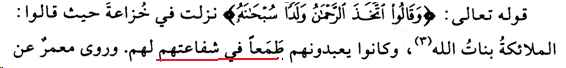 قوله تعالى: ﴿وَقَالُوا۟ ٱتَّخَذَ ٱلرَّحْمَٰنُ وَلَدًا سُبْحَٰنَهُۥ﴾ نزلت في خُزاعةَ حيث قالوا:
الملائكةُ بناتُ الله(٣)، وكانوا يعبدونهم طَمَعاً في شفاعتهم لهم. وروى معمرٌ عن